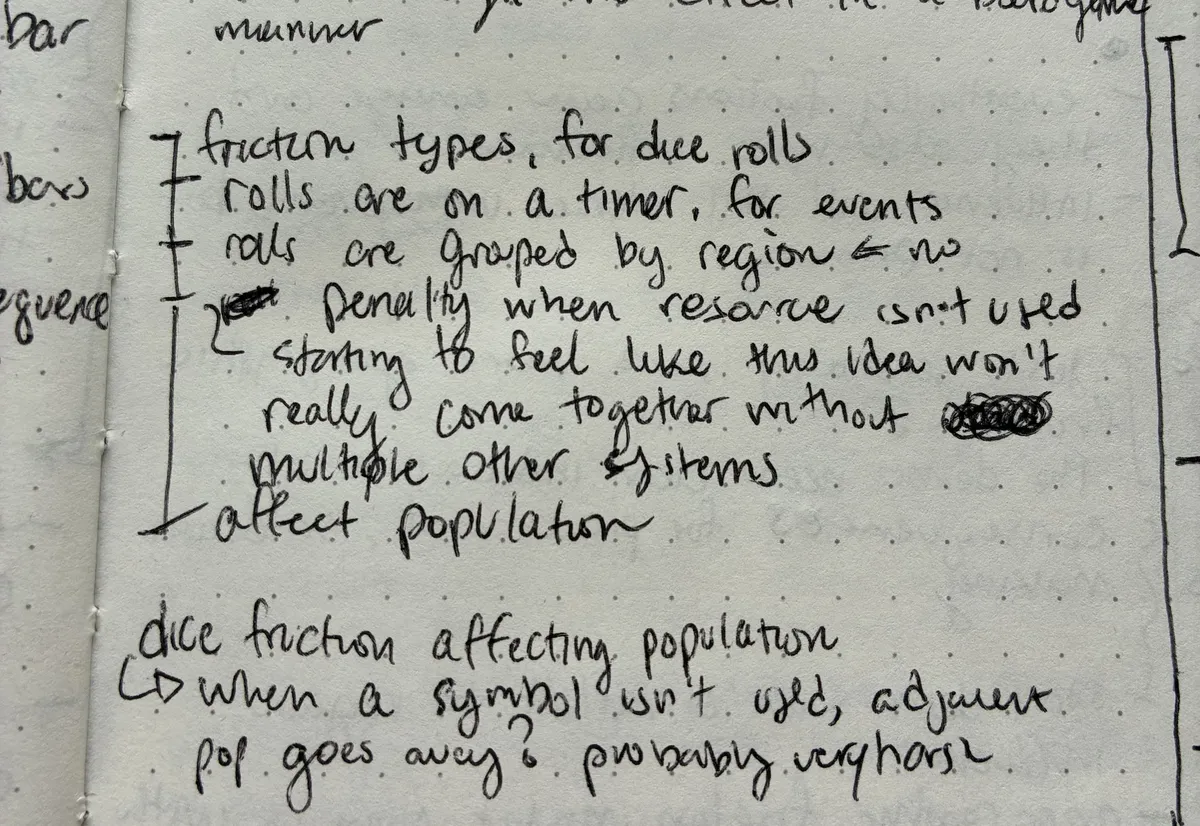 bar
manner
friction types, for dice rolls
bars
rolls are on a timer, for events
rolls are grouped by region ← no
equence
penalty when resource isn't used
starting to feel like this idea won't
really come together without
multiple other systems
affect population
dice friction affecting population
↳ when a symbol isn't used, adjacent
pop goes away? probably very harsh